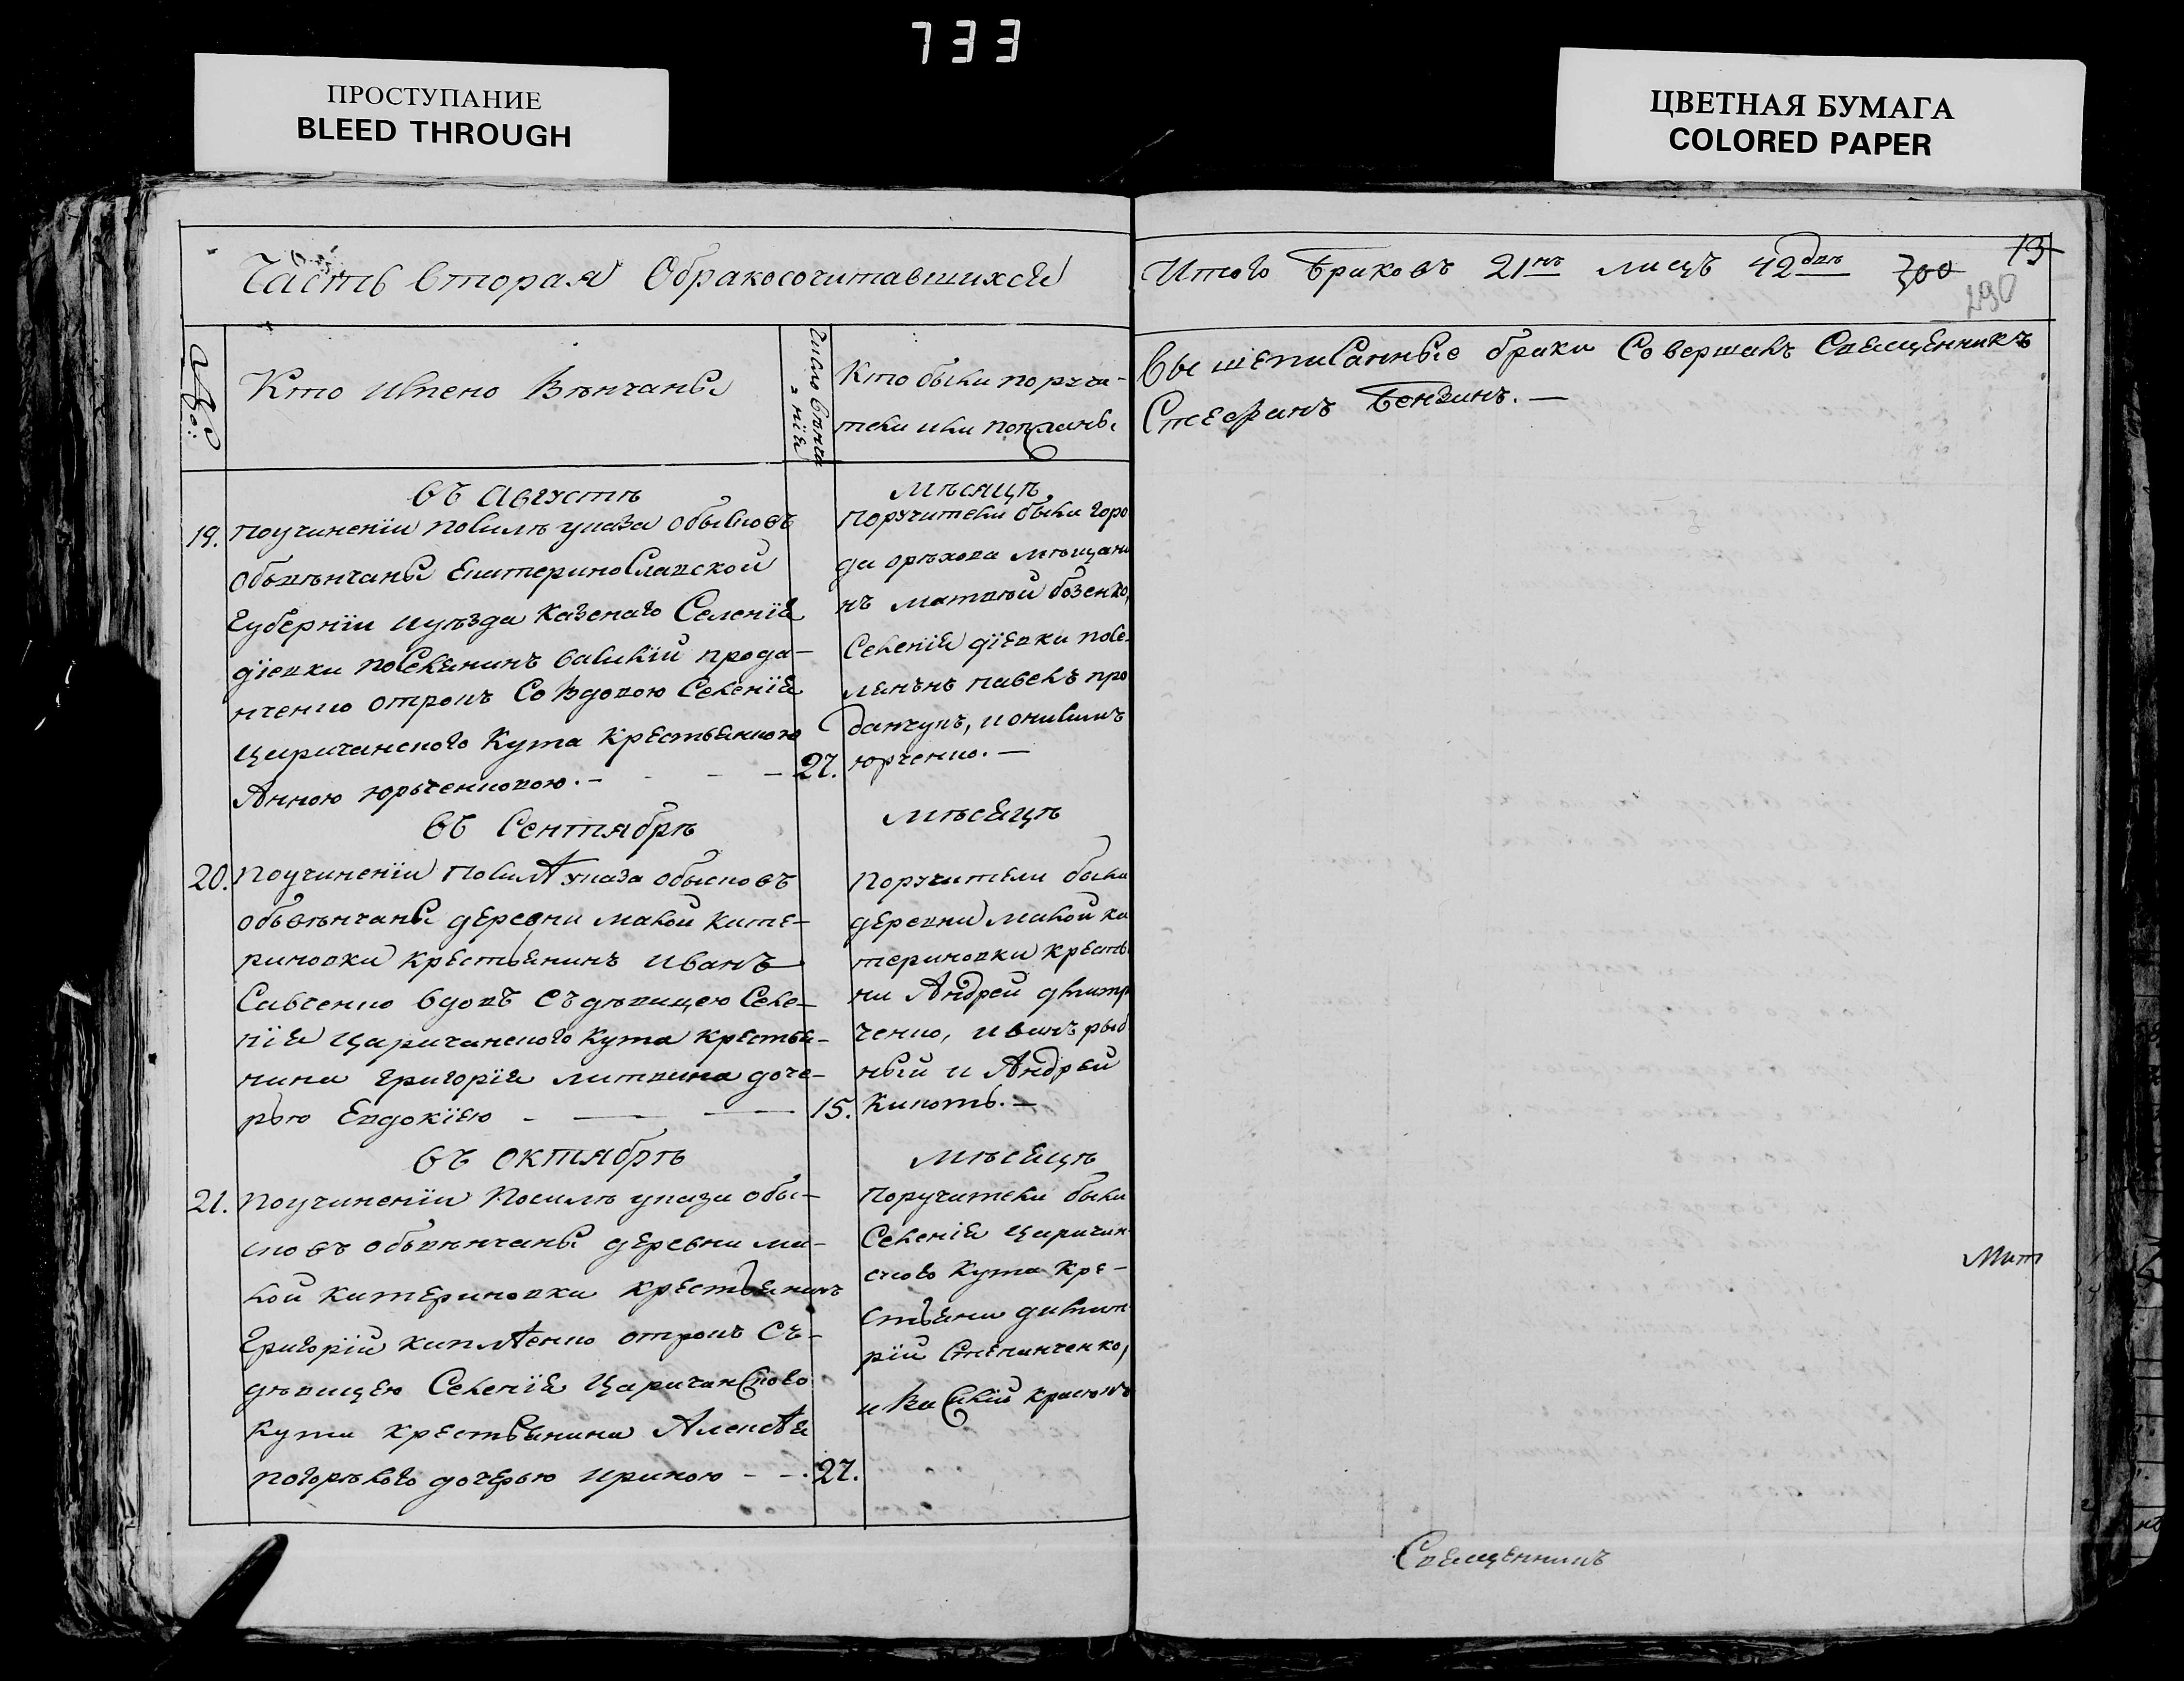 733
ПРОСТУПАНИЕ
BLEED THROUGH
ЦВЕТНАЯ БУМАГА
COLORED PAPER
Часть вторая Обракосочитавшихся
Кто имено Вѣнчаны
Число вѣнча
нія
Кто были поручи-
тели или поѣзжаны
въ Августѣ
мѣсяцѣ
19. Поучиненіи посилѣ указа обысковъ
обвѣнчаны Екатеринославской
Губерніи и уѣзда Казенаго Селенія
діевки поселянинъ василій прода-
нченко отрокъ Со Вдовою Селенія
Царичанского Кута Крестьянкою
Анною юрьченковою. - 27.
Поручители были горо
да орѣхова мѣщани
нъ матвѣй бозенко,
Селенія діевки посе-
лянѣнъ павелъ про
данчукъ, и онисимъ
юрченко. —
въ Сентябрѣ
мѣсяцѣ
20. Поучиненіи посилѣ указа обысковъ
обвѣнчаны деревни малой кате-
риновки крестьянинъ иванъ
Савченко вдовъ съ дѣвицею Селе-
нія Царичанского Кута крестья-
нина григорія литвина доче-
рью Евдокіею - 15.
Поручители были
деревни малой ка
териновки кресть
ни Андрей дмитр
ченко, иванъ рыб
ный и Андрей
Кикоть. —
въ октябрѣ
мѣсяцѣ
21. Поучиненіи посилѣ указа обы-
сковъ обвѣнчаны деревни ма-
лой катериновки крестьянинъ
Григорій отрокъ съ-
дѣвицею Селенія Царичанского
кута крестьянина Алексѣя
погорѣлого дочерью ириною - - 27.
Поручители были
Селенія Царичан-
ского Кута Кре-
стьяни димит
рій Степанченко,
и Василій
Итого Браковъ 21нъ лицъ 42два 300
13
290
Вышеписанные браки Совершалъ Священникъ
Стефанъ Бензинъ. —
Мит
Священникъ